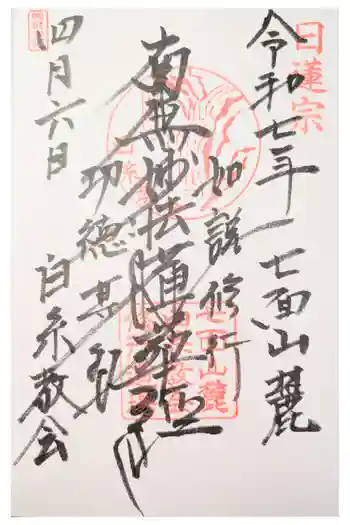 日蓮宗
令和七年 七面山麓
如説修行
南無妙法蓮華経
功徳甚
四月六日 白糸教会
七面山麓